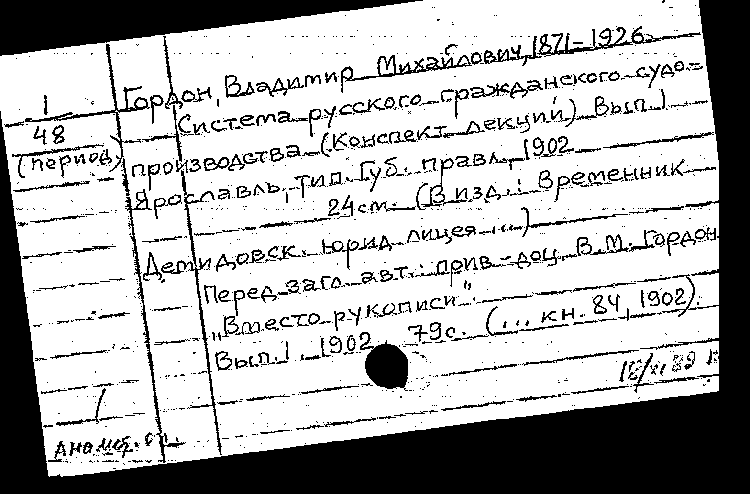 Гордон, Владимир Михайлович, 1871–1926.
1
48
(период)
Система русского гражданского судо-
производства (Конспект лекций) Вып. 1
Ярославль, тип. Губ. правл., 1902
24см. (В изд.: Временник
Демидовск. юрид. лицея ...)
Перед загл. авт.: прив-доц. В.М. Гордон
„Вместо рукописи".
Вып. 1. 1902. 79с. (... кн. 84, 1902).